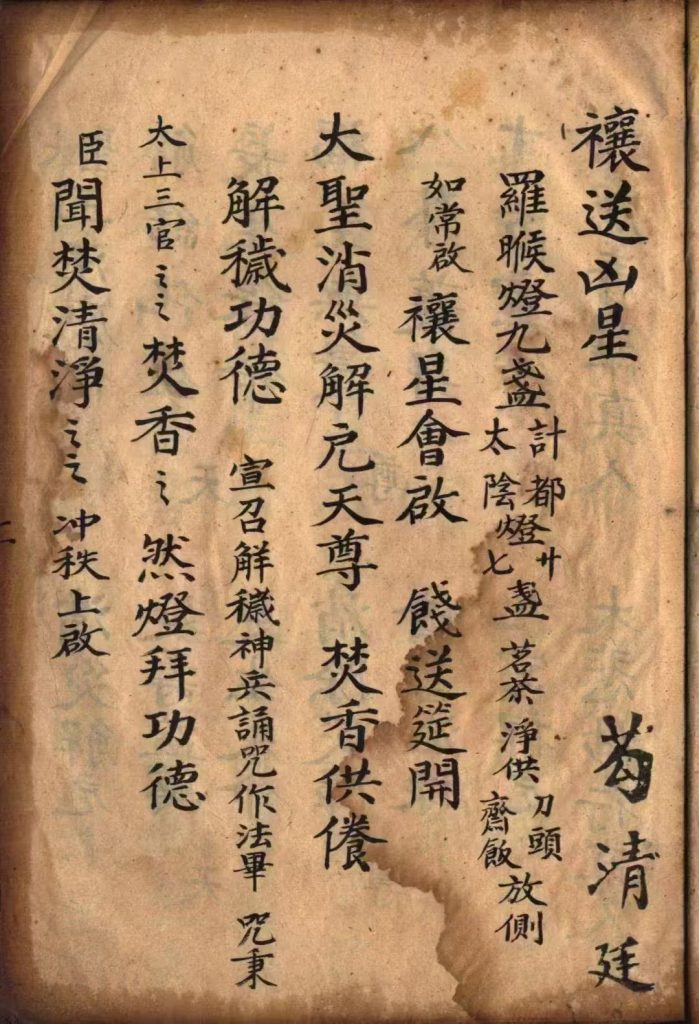 禳送凶星 芶清廷
羅睺燈九盞 計都燈廿 太陰燈七盞 茗茶淨供 刀頭齋飯放側
如常啟 禳星會啟 餞送筵開
大聖消災解厄天尊 焚香供養
解穢功德 宣召解穢神兵誦咒作法畢 咒秉
太上三官〻〻焚香〻然燈拜功德
臣聞焚清淨〻〻冲秩上啟